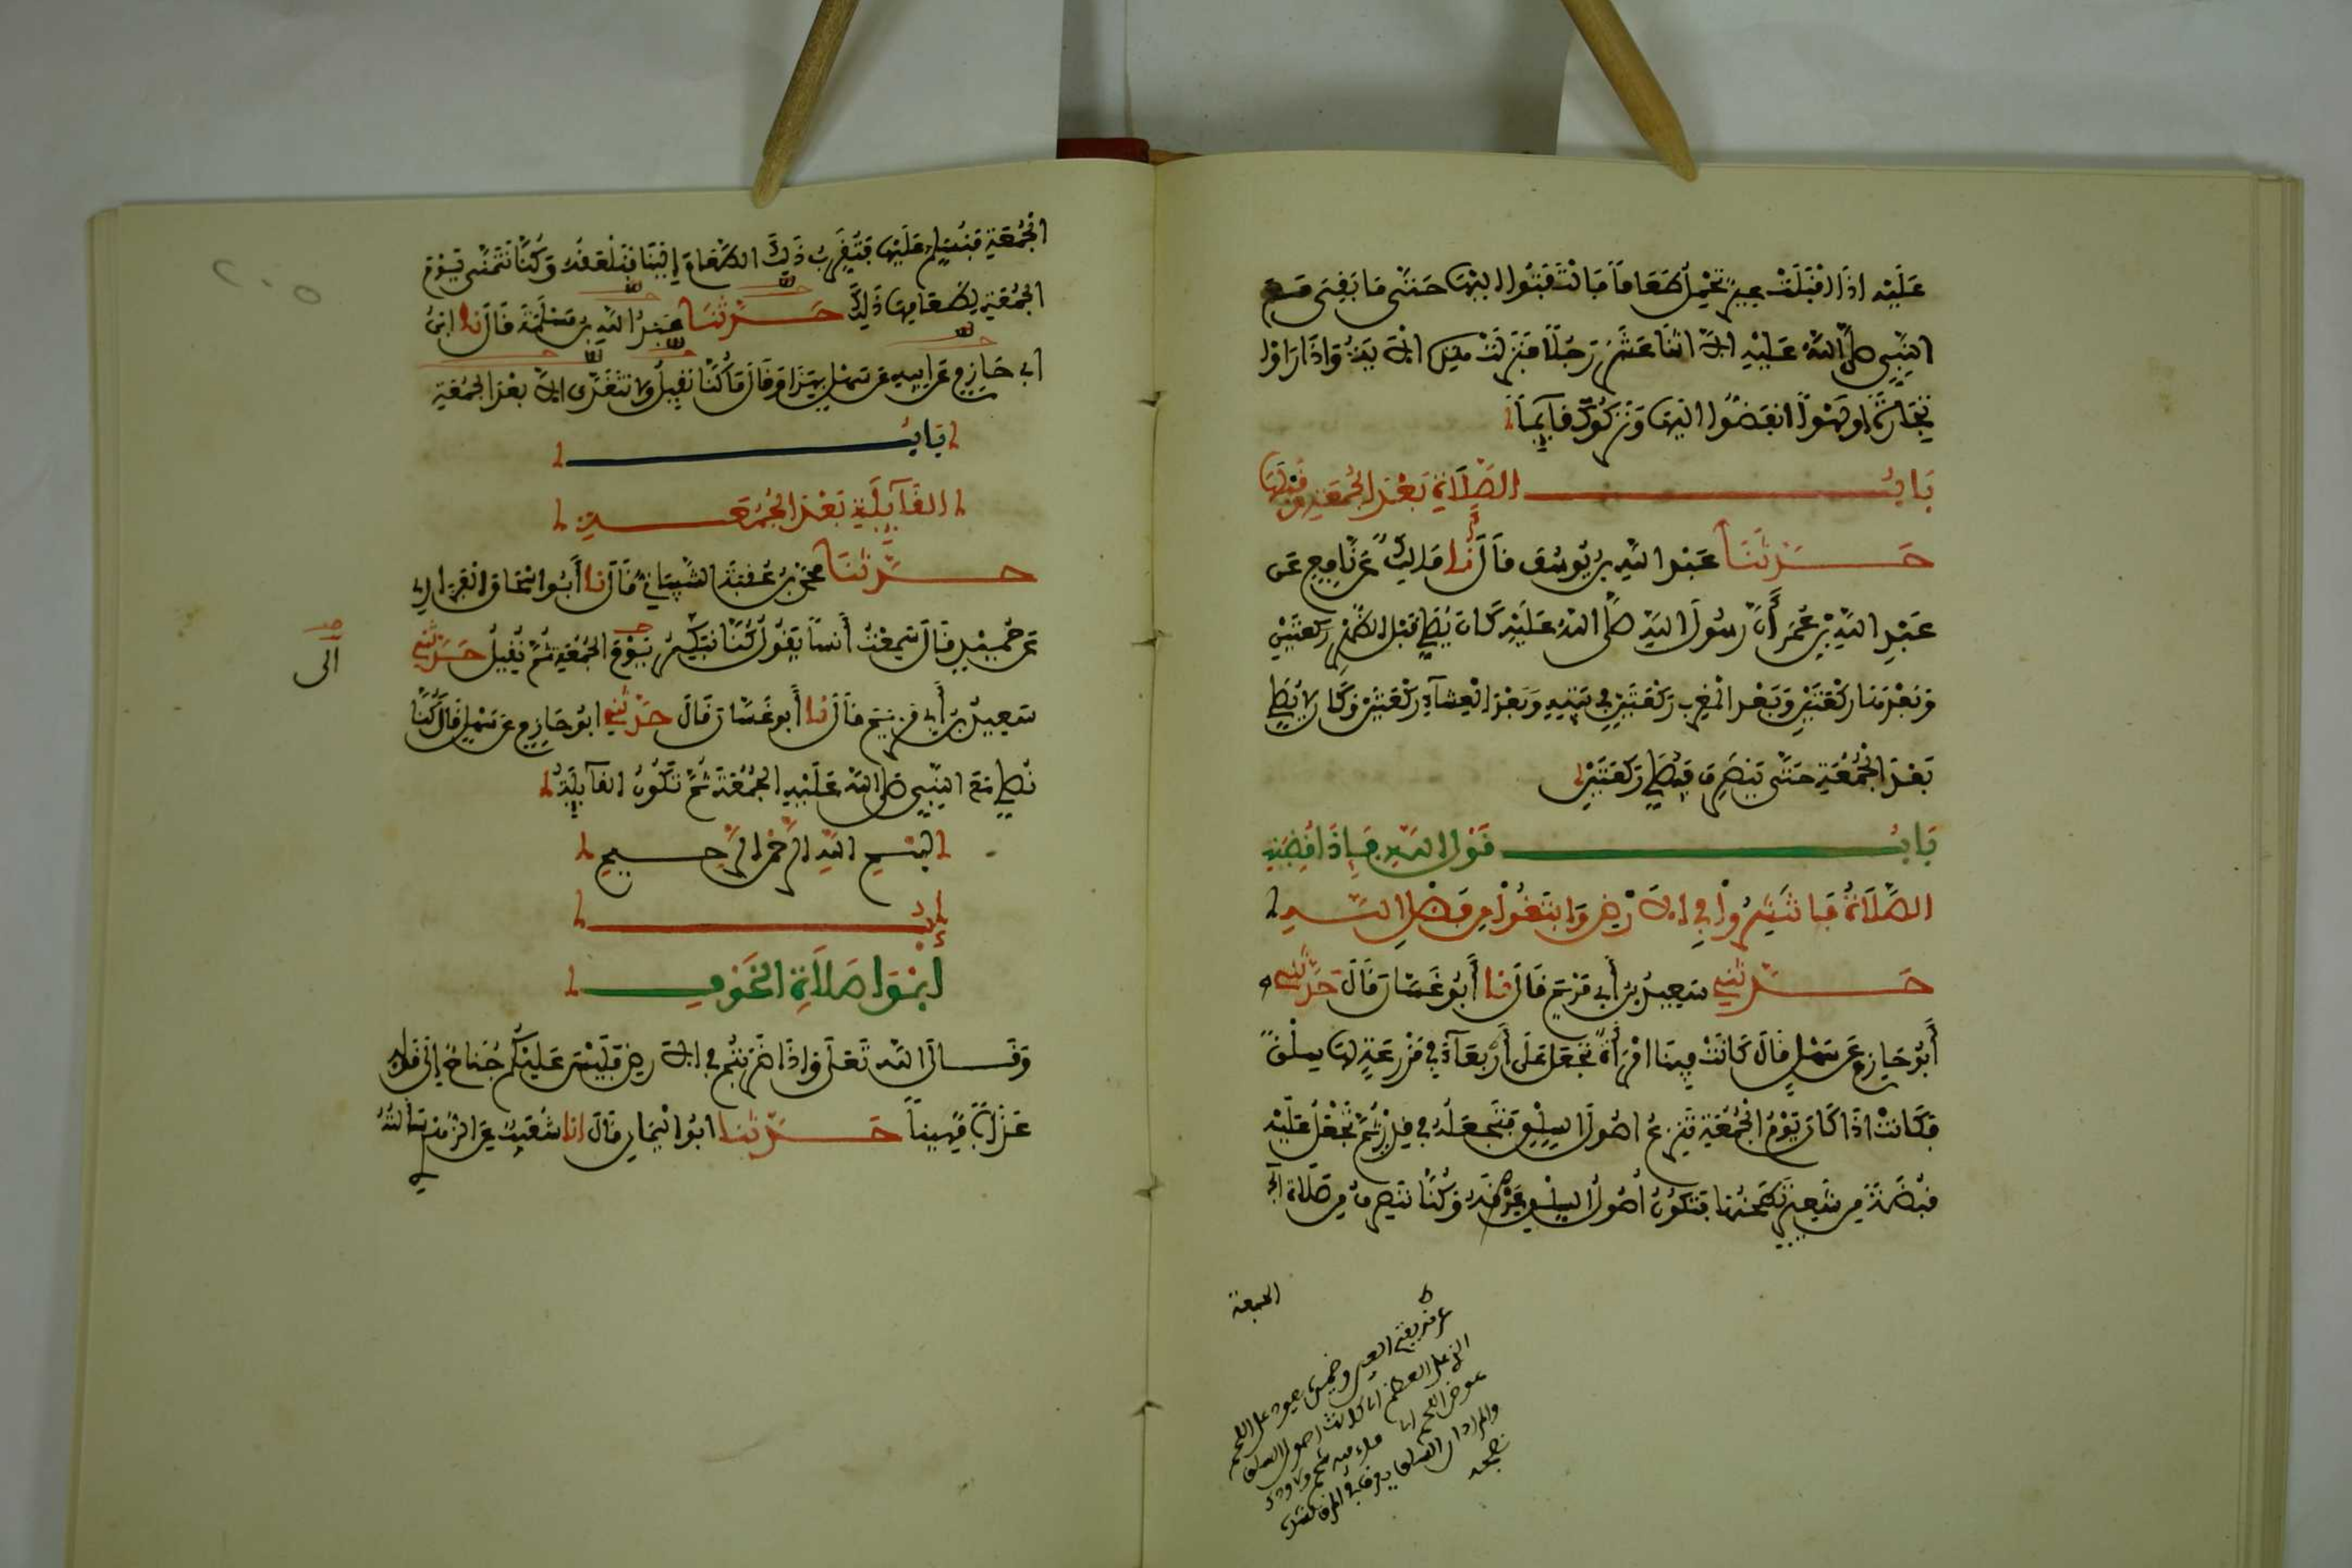 عَلَيْهِ اذَا اقْبَلَتْ عِيرٌ تَحْمِلُ طَعَاماً فَالْتَفَتُوا اليْهَا حَتَّى مَا بَقِىَ مَعَ
النَّبِيِّ صلى اللهُ عَلَيْهِ الاَّ اثْنَا عَشَرَ رَجُلاً فَنَزَلَتْ هذِهِ الايَةُ وَإذَا رَأَوْا
تِجَارَةً اوْ لَهْواً انفَضُّوا الَيْهَا وَتَرَكُوكَ قَآيِماً
بَابُ الصَّلَاةِ بَعْدَ الجُمُعَةِ وَقَبْلَهَا
حَدَّثَنَا عَبْدُ اللهِ بنُ يُوسُفَ قَالَ أنا مَالِكٌ عَنْ نَافِعٍ عَن
عَبْدِ اللهِ بْنِ عُمَرَ أَنَّ رَسُولَ اللهِ صَلَّى اللهُ عَلَيْهِ كَانَ يُصَلِّي قَبْلَ الظُّهْرِ رَكعَتَيْنِ
وَبَعْدَهَا رَكْعَتَيْنِ وَبَعْدَ الْمَغْرِبِ رَكْعَتَيْنِ فِي بَيْتِهِ وَبَعْدَ الْعِشَآءِ رَكْعَتَيْنِ وَكَانَ لا يُصَلِّي
بَعْدَ الْجُمُعَةِ حَتَّى يَنصَرِفَ فَيُصَلِّي رَكعَتَيْنِ
بَابُ قَوْلِ اللهِ فَإِذَا قُضِيَتِ
الصَّلَاةُ فَانتَشِرُوا فِي الارْضِ وَابْتَغُوا مِن فَضْلِ اللهِ
حَدَّثَنِي سَعِيدُ بنُ أَبِي مَرْيَمَ قَالَ نا أَبُو غَسَّانَ قَالَ حَدَّثَنِي
أَبُو حَازِمٍ عَن سَهْلٍ قَالَ كَانَتْ فِينَا امْرَأَةٌ تَجْعَلُ عَلَى أَرْبِعَآءَ فِي مَزْرَعَةٍ لهَا سِلْقاً
فَكَانَتْ اذَا كَانَ يَوْمُ الْجُمُعَةِ تَنْزِعُ اصُولَ السِّلْقِ فَتَجْعَلُهُ فِي قِدْرٍ ثُمَّ تَجْعَلُ عَلَيْهِ
قَبْضَةً مِن شَعِيرٍ تَطْحَنُهَا فَتَكُونُ اُصُولُ السِّلْقِ عَرْقَهُ وَكُنَّا نَنصَرِفُ مِن صَلَاةِ
الجمعة
الجُمُعَةِ فَنُسَلِّمُ عَلَيْهَا فَتُقَرِّبُ ذَلِكَ الطَّعَامَ إِلَيْنَا فَنَلْعَقُهُ وَكُنَّا نَتَمَنَّى يَوْمَ
الجُمُعَةِ لِطَعَامِهَا ذَلِكَ حَدَّثَنَا عَبْدُ اللهِ بنُ مَسْلَمَةَ قَالَ نا ابْنُ
ابي حَازِمٍ عَن ابِيهِ عَن سَهْلٍ بِهَذَا وَقَالَ مَا كُنَّا نَقِيلُ وَلا نَتَغَدَّى الاَّ بَعْدَ الجُمُعَةِ
بَابُ
القَآيِلَةِ بَعْدَ الجُمُعَةِ
حَدَّثَنَا محمَّدُ بنُ عُقْبَةَ الشَّيْبَانِيُّ قَالَ نا أَبُو اسْحَاقَ الفَزَارِيُّ
عَن حُمَيْدٍ قَالَ سَمِعْتُ أَنَساً يَقُولُ كُنَّا نُبَكِّرُ يَوْمَ الجُمُعَةِ ثُمَّ نَقِيلُ حَدَّثَنِي
سَعِيدُ بنُ أَبِي مَرْيَمَ قَالَ نا أَبُو غَسَّانَ قَالَ حَدَّثَنِي ابُو حَازِمٍ عَن سَهْلٍ قَالَ كُنَّا
نُصَلِّي مَعَ النَّبِيِّ صلى اللهُ عَلَيْهِ الجُمُعَةَ ثُمَّ تَكُونُ القَآيِلَةُ
بسْمِ اللهِ الرَّحْمنِ الرَّحِيمِ
أبْوَابُ صَلَاةِ الخَوْفِ
وَقَالَ اللهُ تَعَلَى وَإِذَا ضَرَبْتُمْ فِي الارْضِ فَلَيْسَ عَلَيْكُمْ جُنَاحٌ إلَى قَوْلِهِ
عَذَاباً مُّهِيناً حَدَّثَنَا ابُو الْيَمَانِ قَالَ انا شُعَيْبٌ عَنِ الزُّهْرِيِّ سَأَلْتُهُ
الى